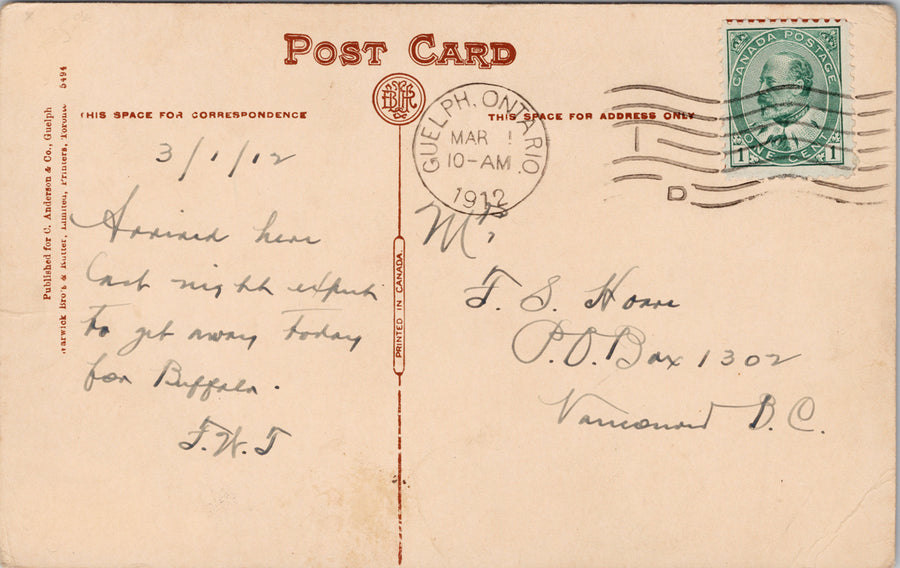 POST CARD
THIS SPACE FOR CORRESPONDENCE
THIS SPACE FOR ADDRESS ONLY
5494
Published for C. Anderson & Co., Guelph
Warwick Bro's & Rutter, Limited, Printers, Toronto
PRINTED IN CANADA.
GUELPH, ONTARIO
MAR 1
10-AM
1912
D
CANADA POSTAGE
1 ONE CENT 1
3/1/12
Arrived here
last night expect
to get away today
for Buffalo.
F.W.T
Mr
F. S. Hoare
P.O. Box 1302
Vancouver B.C.